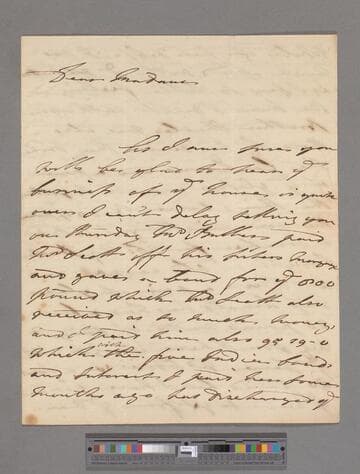 Dear Madame
As I am sure you
will be glad to hear ye
business of ye house is quite
over I can't delay telling you
on Thursday Butler paid
Scott off his sisters
and gave a Bond for ye 800
pound which Scott also
received as so much money,
and I paid him also 95 19-0
which with the five India bonds
and Interest I paid him some
months ago has discharged ye